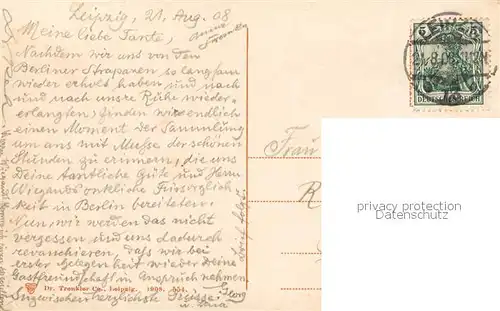 Leipzig, 21. Aug. 08
Meine liebe Tante,
Nachdem wir uns von den
Berliner Strapazen so langsam
wieder erholt haben und nach
und nach unsre Ruhe wieder-
erlangten, finden wir endlich
einen Moment der Sammlung
um uns mit Musse der schönen
Stunden zu erinnern, die uns
Deine tantliche Güte und Herrn
Wiegands onkliche Fürsorglich-
keit in Berlin bereiteten.
Nun, wir werden das nicht
vergessen und uns dadurch
revanchieren, dass wir bei
erster Gelegenheit wieder Deine
Gastfreundschaft in Anspruch nehmen
Inzwischen herzlichste Grüsse
Georg
u.
Dr. Trenkler Co., Leipzig. 1908.
Frau
5
21.8.08
DEUTSCHES REICH
privacy protection
philasearch.com